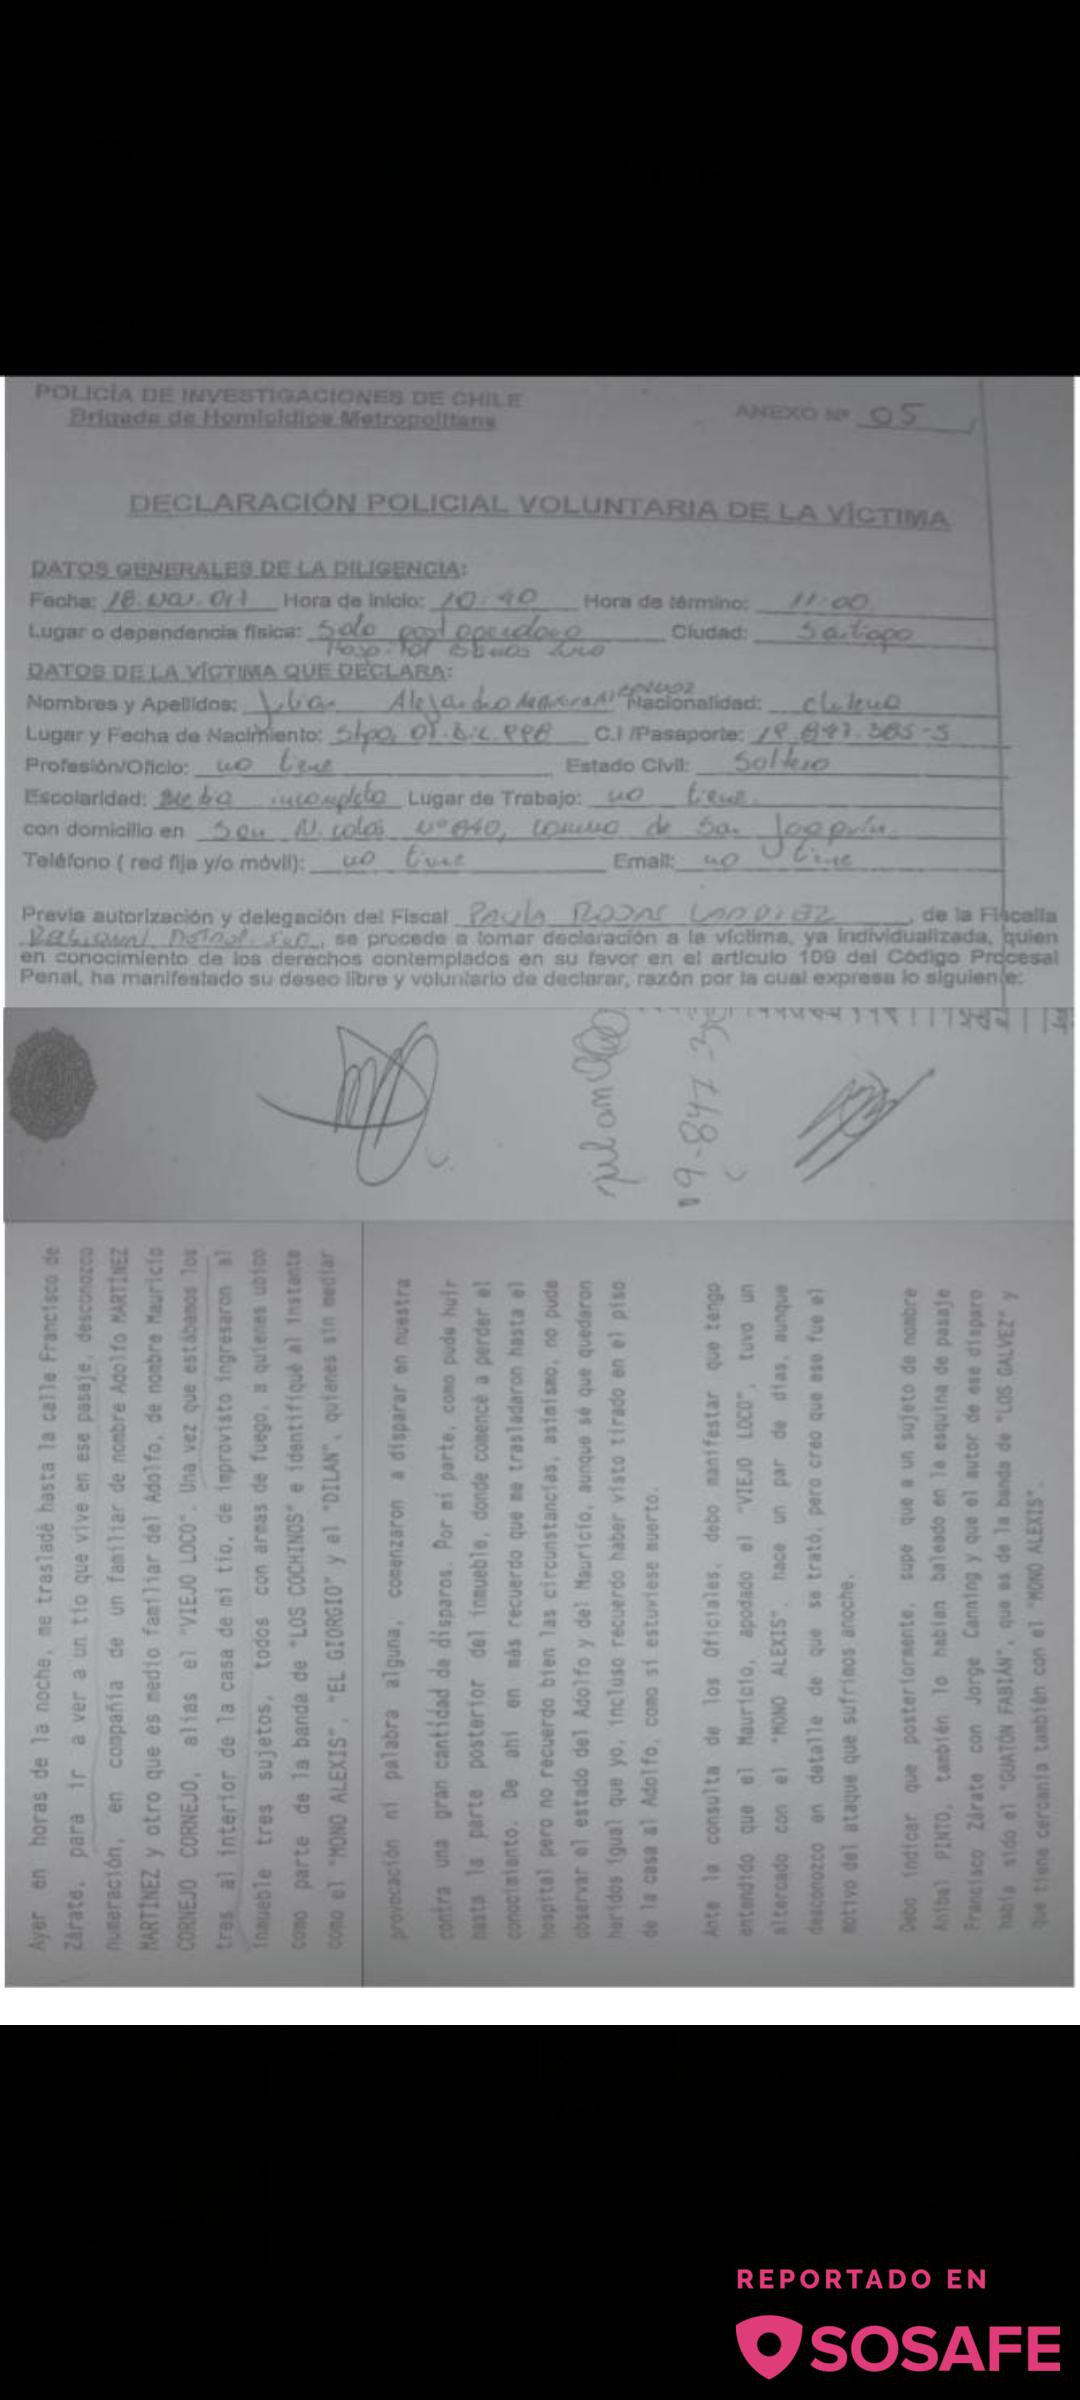 POLICÍA DE INVESTIGACIONES DE CHILE
Brigada de Homicidios Metropolitana
ANEXO Nº 05
DECLARACIÓN POLICIAL VOLUNTARIA DE LA VÍCTIMA
DATOS GENERALES DE LA DILIGENCIA:
Fecha: 18. Nov. 017 Hora de inicio: 10:40 Hora de término: 11:00
Lugar o dependencia física: Sala post operatorio Ciudad: Santiago
Hospital Barros Luco
DATOS DE LA VÍCTIMA QUE DECLARA:
Nombres y Apellidos: Julian Alejandro Nacionalidad: chilena
Lugar y Fecha de Nacimiento: Stgo, 07. Dic. 998 C.I /Pasaporte: 19.847.385-5
Profesión/Oficio: no tiene Estado Civil: Soltero
Escolaridad: Media incompleta Lugar de Trabajo: no tiene.
con domicilio en San Nicolás Nº 840, comuna de San Joaquín.
Teléfono ( red fija y/o móvil): no tiene Email: no tiene
Previa autorización y delegación del Fiscal PAULA ROJAS, de la Fiscalía
Regional Metrop. Sur, se procede a tomar declaración a la víctima, ya individualizada, quien
en conocimiento de los derechos contemplados en su favor en el artículo 109 del Código Procesal
Penal, ha manifestado su deseo libre y voluntario de declarar, razón por la cual expresa lo siguiente:
Ayer en horas de la noche, me trasladé hasta la calle Francisco de
Zárate, para ir a ver a un tío que vive en ese pasaje, desconozco
numeración, en compañía de un familiar de nombre Adolfo MARTÍNEZ
MARTÍNEZ y otro que es medio familiar del Adolfo, de nombre Mauricio
CORNEJO CORNEJO, alias el "VIEJO LOCO". Una vez que estábamos los
tres al interior de la casa de mi tío, de improvisto ingresaron al
inmueble tres sujetos, todos con armas de fuego, a quienes ubico
como parte de la banda de "LOS COCHINOS" e identifiqué al instante
como el "MONO ALEXIS", "EL GIORGIO" y el "DILAN", quienes sin mediar
provocación ni palabra alguna, comenzaron a disparar en nuestra
contra una gran cantidad de disparos. Por mi parte, como pude huir
hasta la parte posterior del inmueble, donde comencé a perder el
conocimiento. De ahí en más recuerdo que me trasladaron hasta el
hospital pero no recuerdo bien las circunstancias, asimismo, no pude
observar el estado del Adolfo y del Mauricio, aunque sé que quedaron
heridos igual que yo, incluso recuerdo haber visto tirado en el piso
de la casa al Adolfo, como si estuviese muerto.
Ante la consulta de los Oficiales, debo manifestar que tengo
entendido que el Mauricio, apodado el "VIEJO LOCO", tuvo un
altercado con el "MONO ALEXIS", hace un par de días, aunque
desconozco en detalle de que se trató, pero creo que ese fue el
motivo del ataque que sufrimos anoche.
Debo indicar que posteriormente, supe que a un sujeto de nombre
Aníbal PINTO, también lo habían baleado en la esquina de pasaje
Francisco Zárate con Jorge Canning y que el autor de ese disparo
había sido el "GUATÓN FABIÁN", que es de la banda de "LOS GALVEZ" y
que tiene cercanía también con el "MONO ALEXIS".
REPORTADO EN
SOSAFE